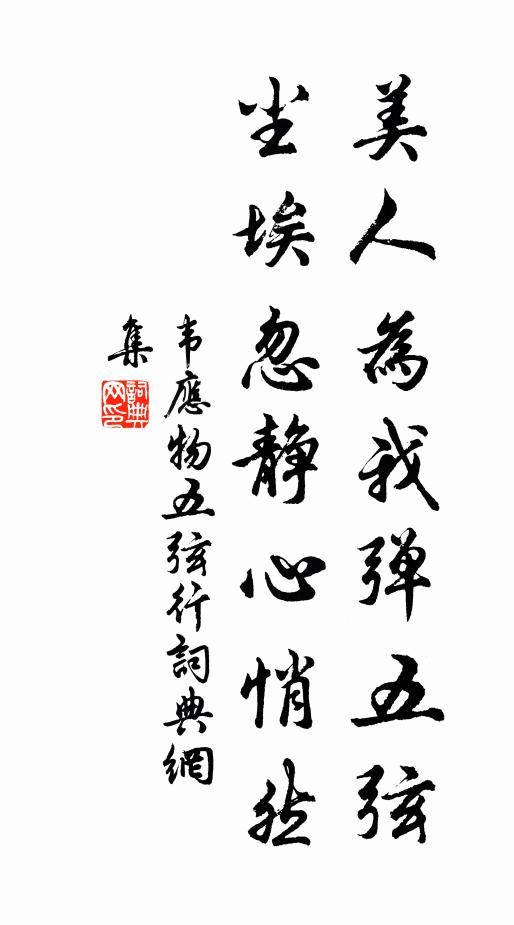 美人為我弹五弦
尘埃忽静心悄然
韦應物五弦行詞典網
集
詞典
网印